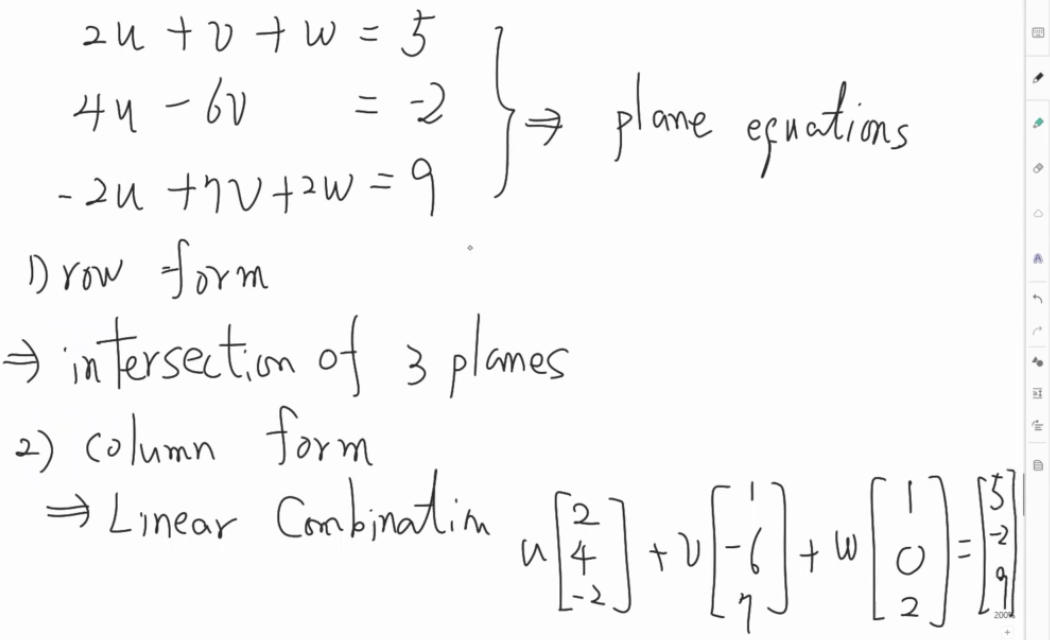 2u + v + w = 5
4u - 6v = -2
-2u + 7v + 2w = 9
⇒ plane equations
1) row form
⇒ intersection of 3 planes
2) column form
⇒ Linear Combination u [2 4 -2] + v [1 -6 7] + w [1 0 2] = [5 -2 9]
200%